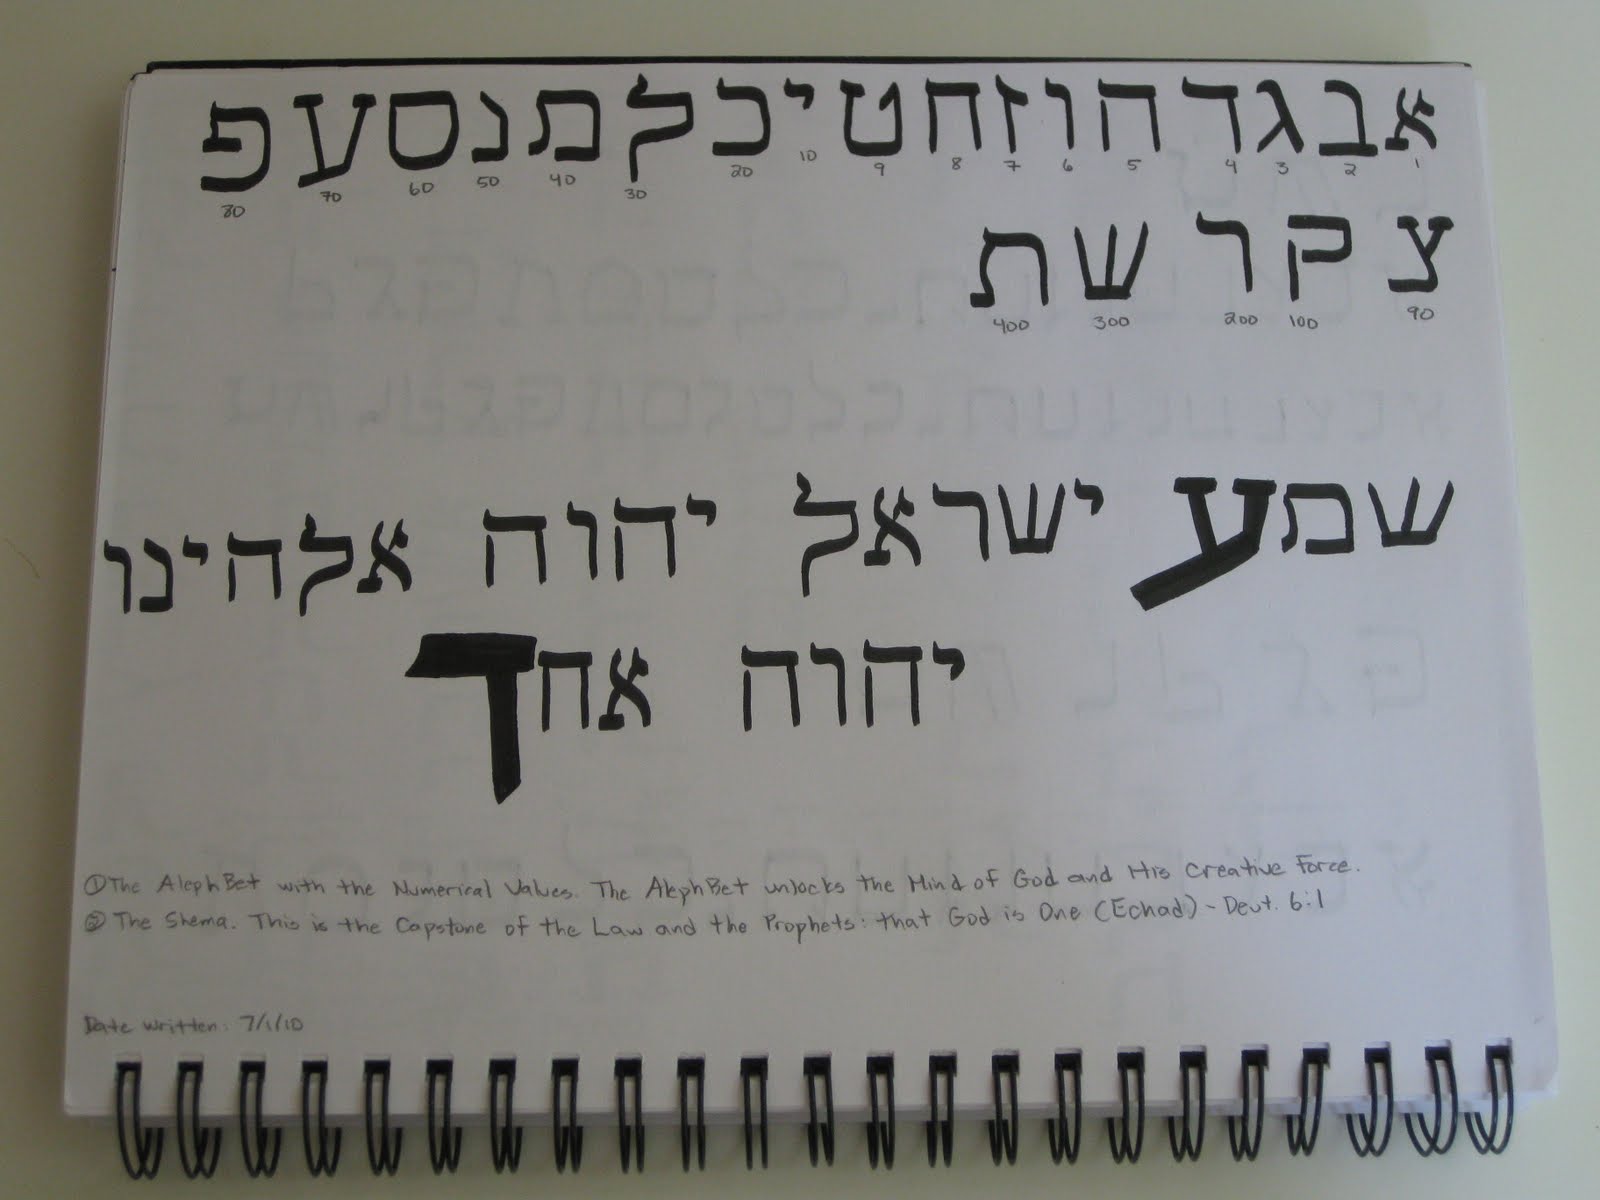 א ב ג ד ה ו ז ח ט י כ ל מ נ ס ע פ
1 2 3 4 5 6 7 8 9 10 20 30 40 50 60 70 80
צ ק ר ש ת
90 100 200 300 400
שמע ישראל יהוה אלהינו
יהוה אחד
① The AlephBet with the Numerical Values. The AlephBet unlocks the Mind of God and His Creative Force.
② The Shema. This is the Capstone of the Law and the Prophets: that God is One (Echad) - Deut. 6:1
Date written: 7/1/10